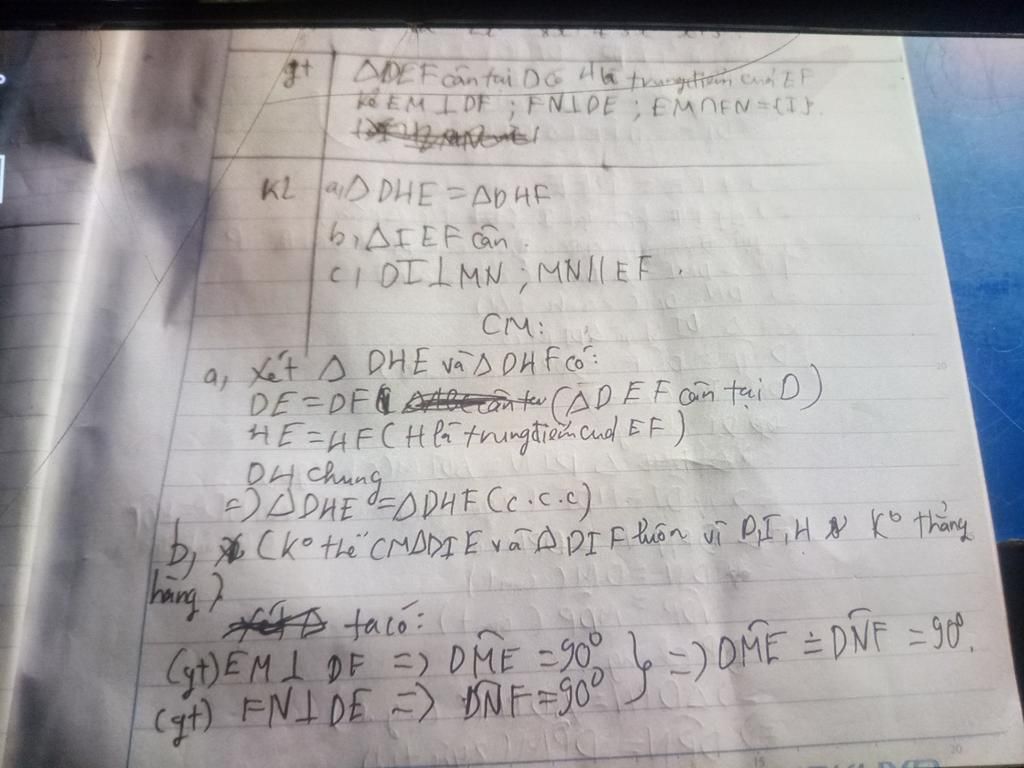 gt
ΔDEF cân tại D có H là trung điểm của EF
kẻ EM ⊥ DF ; FN ⊥ DE ; EM ∩ FN = {I}.
Kl
a, Δ DHE = ΔDHF
b, ΔIEF cân.
c, DI ⊥ MN ; MN // EF.
CM:
a, Xét Δ DHE và Δ DHF có:
DE = DF (ΔDEF cân tại D)
HE = HF (H là trung điểm của EF)
DH chung
=) ΔDHE = ΔDHF (c.c.c)
b, (K° thể CM ΔDIE và Δ DIF luôn vì D, I, H K° thẳng
hàng)
ta có:
(gt) EM ⊥ DF =) DM̂E = 90° } =) DM̂E = DN̂F = 90°.
(gt) FN ⊥ DE =) DN̂F = 90°
15
20
20